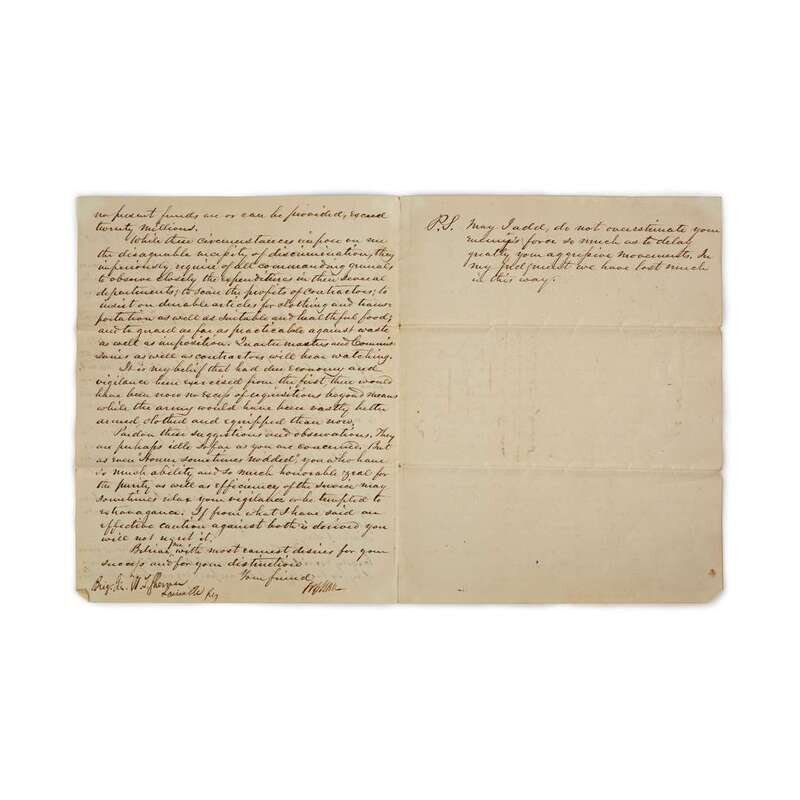 no present funds are or can be provided, exceed
twenty millions.
While these circumstances impose on me
the disagreeable necessity of discrimination, they
imperiously require of all commanding generals
to observe closely the expenditures in their several
departments; to scan the profits of contractors; to
insist on durable articles for clothing and trans-
portation as well as suitable and healthful food;
and to guard as far as practicable against waste
as well as imposition. Quarter masters and Commis-
saries as well as contractors will bear watching.
It is my belief that had due economy and
vigilance been exercised from the first, there would
have been now no excess of requisitions beyond means
while the army would have been vastly better
armed clothed and equipped than now.
Pardon these suggestions and observations. They
are perhaps idle so far as you are concerned. But
as even Homer sometimes nodded, you who have
so much ability and so much honorable zeal for
the purity as well as efficiency of the service may
sometimes relax your vigilance or be tempted to
extravagance. If from what I have said an
effective caution against both is derived you
will not regret it.
Believe me with most earnest desires for your
success and for your distinction
Your friend
Brig. Gen. W. T. Sherman
Louisville Ky
P.S. May I add, do not overestimate your
enemy's force so much as to delay
greatly your aggressive movements. In
my judgment we have lost much
in this way.